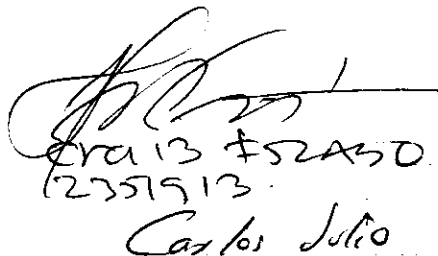 Cra 13 # 52A50
12351913.
Carlos Julio